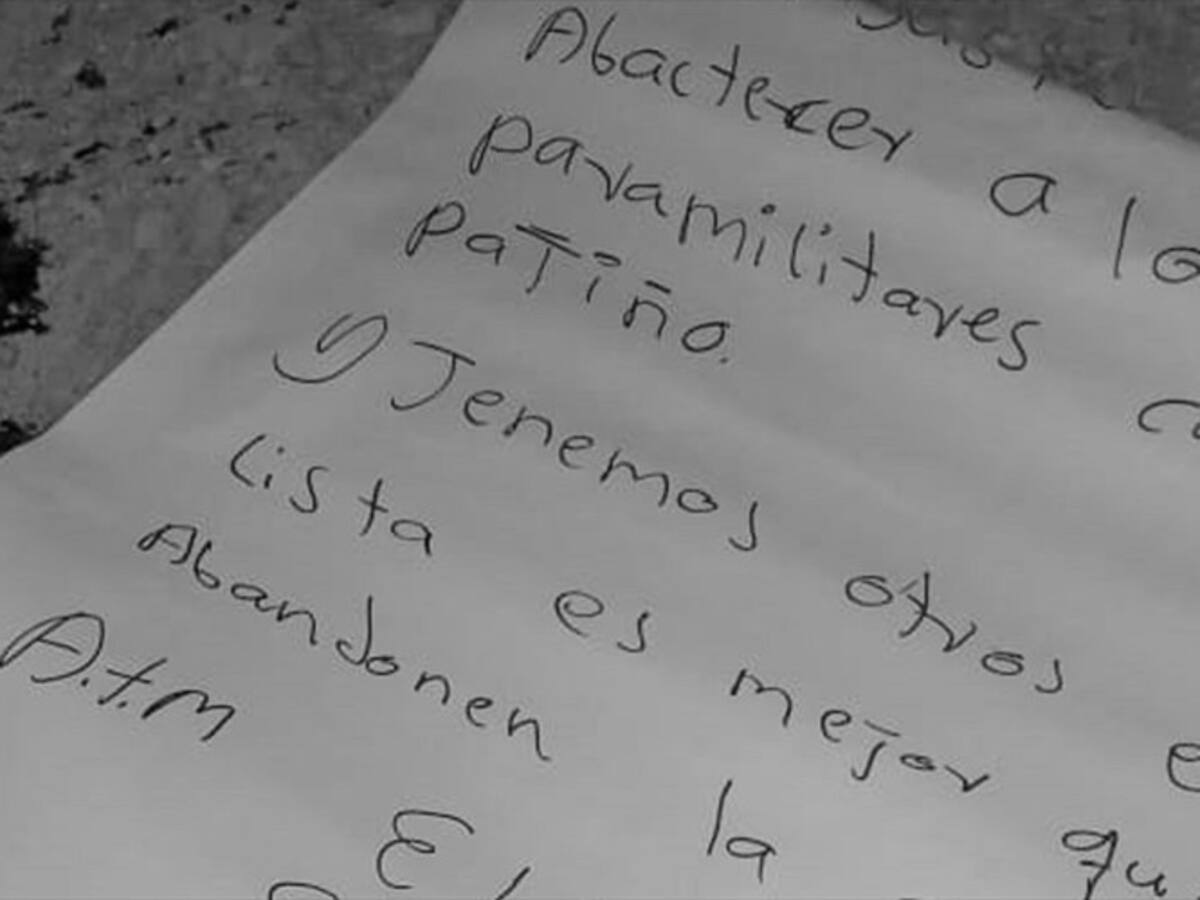 Abactecer a lo
paramilitares
patiño.
y Jenemos otros
Lista es mejor qu
Abandonen la
A.t.m El